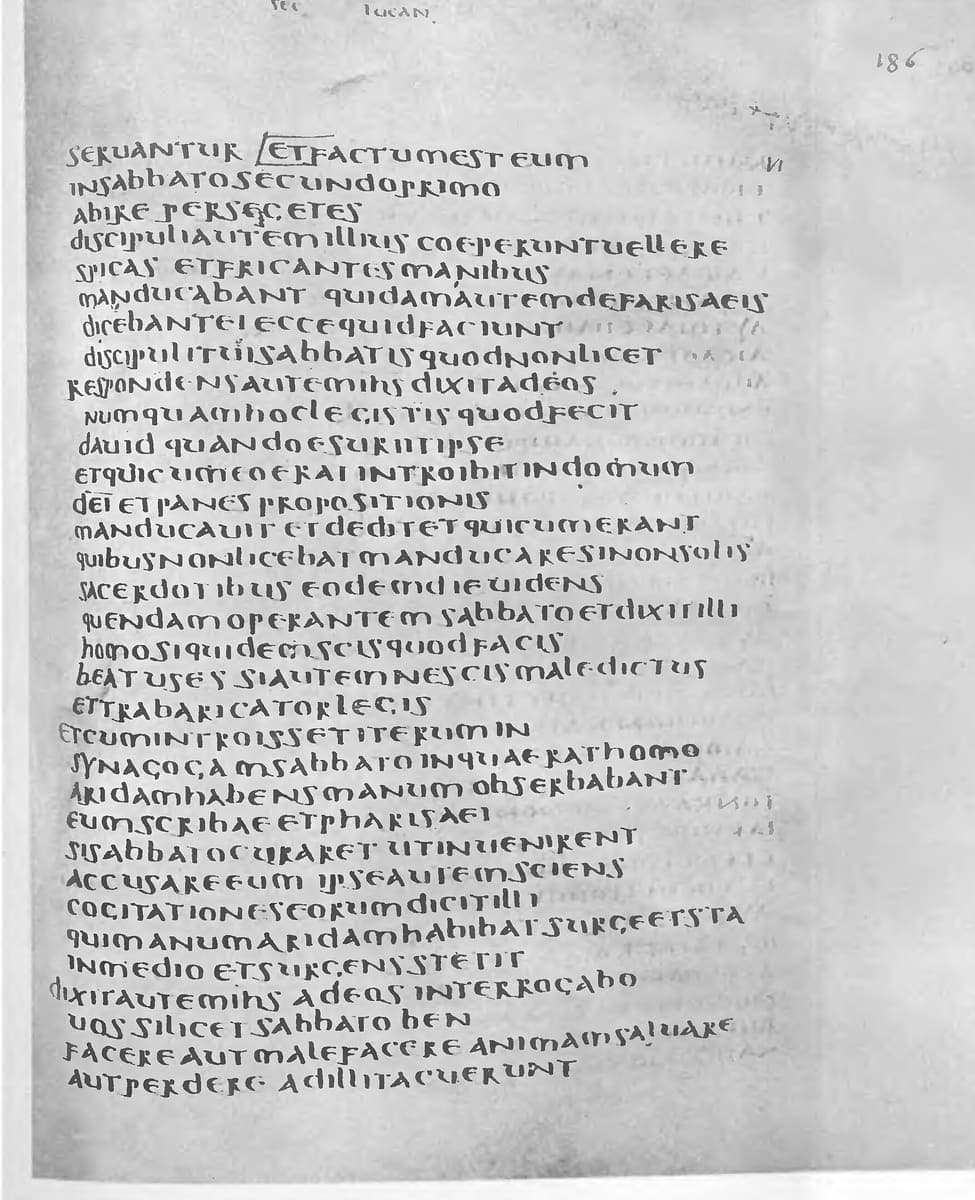 SEC LUCAN
186
SERUANTUR ETFACTUMEST EUM
INSABBATOSECUNDOPRIMO
ABIRE PERSEGETES
DISCIPULIAUTEMILLIUS COEPERUNTUELLERE
SPICAS ETFRICANTESMANIBUS
MANDUCABANT QUIDAMAUTEMDEFARISAEIS
DICEBANTEI ECCEQUIDFACIUNT
DISCIPULITUIISABBATISQUODNONLICET
RESPONDENSAUTEMIHS DIXITADEOS
NUMQUAMHOCLEGISTISQUODFECIT
DAUID QUANDOESURIITIPSE
ETQUICUMEOERAT INTROIBITINDOMUM
DEI ETPANES PROPOSITIONIS
MANDUCAUIT ETDEDITETQUICUMERANT
QUIBUSNONLICEBATMANDUCARESINONSOLIS
SACERDOTIBUS EODEMDIEUIDENS
QUENDAMOPERANTEMSABBATOETDIXITILLI
HOMOSIQUIDEMSCISQUODFACIS
BEATUSES SIAUTEMNESCISMALEDICTUS
ETTRABARICATORLEGIS
ETCUMINTROISSETITERUMIN
SYNAGOGAMSABBATOINQUAERATHOMO
ARIDAMHABENSMANUMOBSERBABANT
EUMSCRIBAEETPHARISAEI
SISABBATOCURARET UTINUENIRENT
ACCUSAREEUM IPSEAUTEMSCIENS
COGITATIONESEORUMDICITILLI
QUIMANUMARIDAMHABIBATSURGEETSTA
INMEDIO ETSURGENSSTETIT
DIXITAUTEMIHS ADEOS INTERROGABO
UOSSILICETSABBATO BEN
FACEREAUTMALEFACERE ANIMAMSALUARE
AUTPERDERE ADILLITACUERUNT